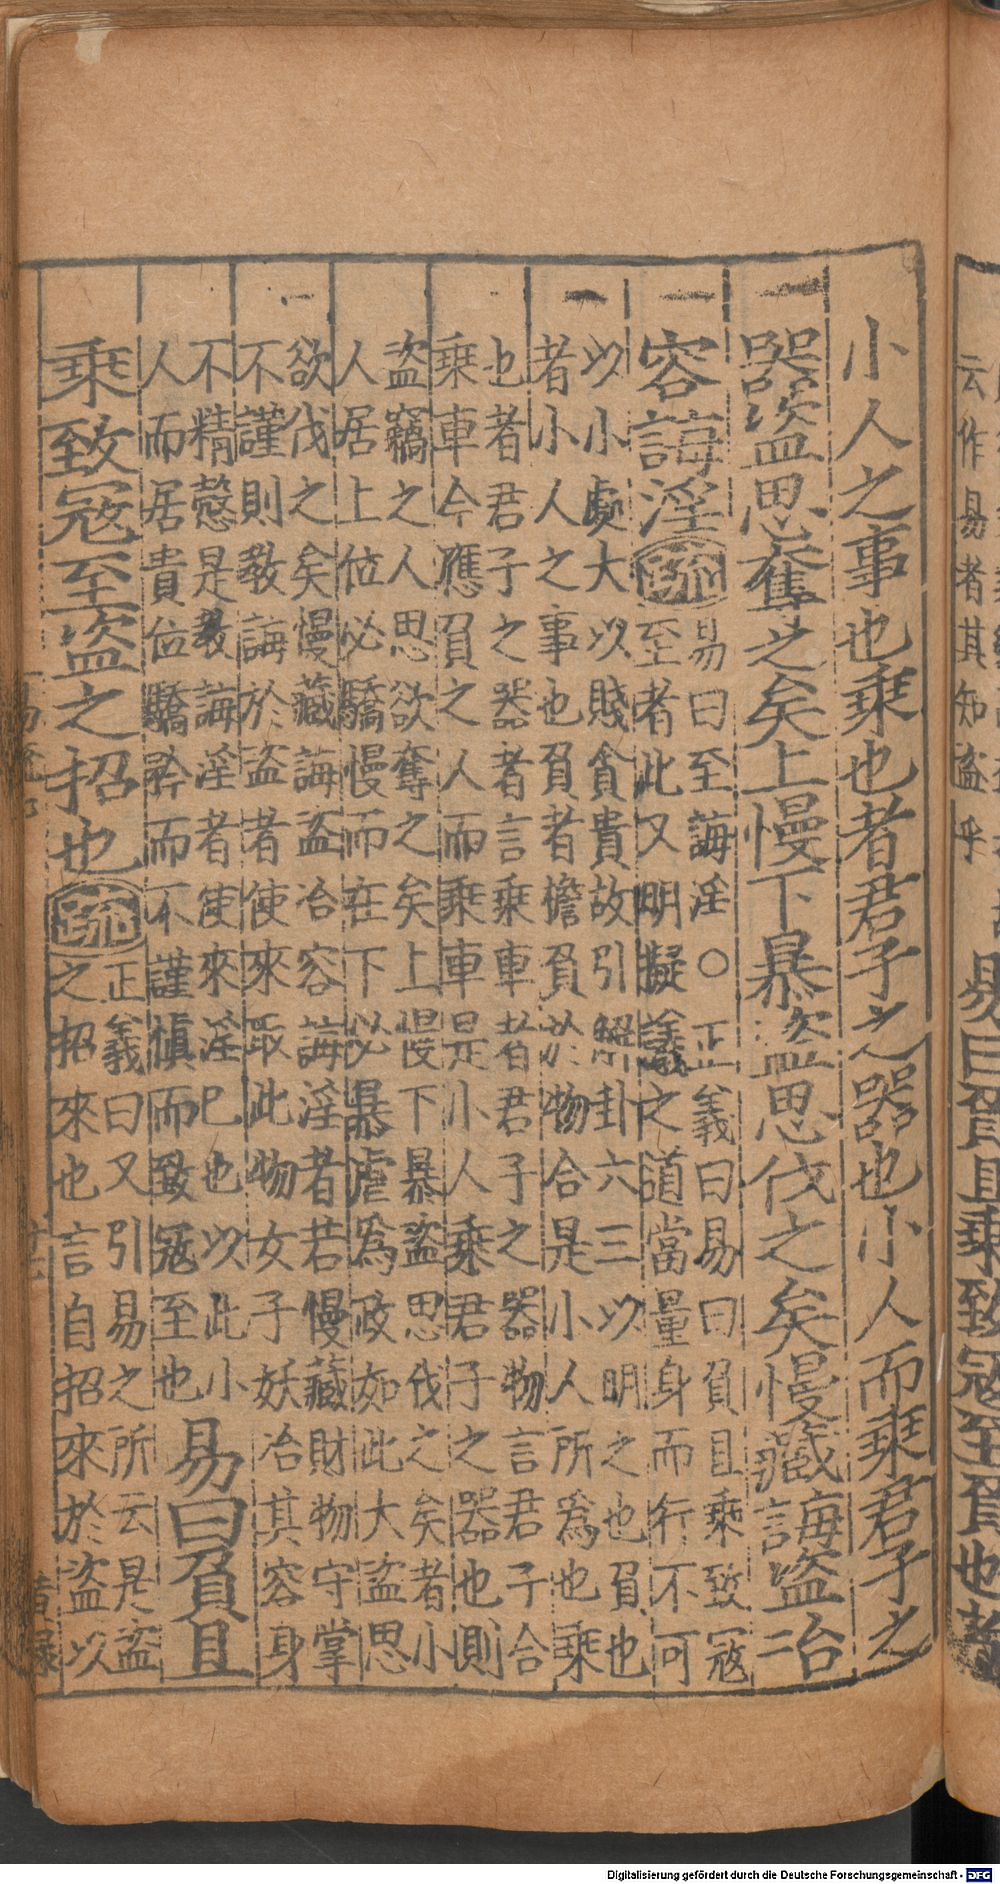 云作易者其知盗乎
易曰負且乘致寇至負也者
小人之事也乘也者君子之器也小人而乘君子之
器盗思奪之矣上慢下暴盗思伐之矣慢藏誨盗冶
容誨淫疏
易曰至誨淫○正義曰易曰負且乘致寇
至者此又明擬議之道當量身而行不可
以小處大以賤貪貴故引解卦六三以明之也負也
者小人之事也負者擔負於物合是小人所為也乘
也者君子之器者言乘車者君子之器物言君子合
乘車今應負之人而乘車是小人乘君子之器也則
盗竊之人思欲奪之矣上慢下暴盗思伐之矣者小
人居上位必驕慢而在下必暴虐為政如此大盗思
欲伐之矣慢藏誨盗冶容誨淫者若慢藏財物守掌
不謹則教誨於盗者使來取此物女子妖冶其容身
不精慤是教誨淫者使來淫已也以此小
人而居貴位驕矜而不謹慎而致寇至也
易曰負且
乘致寇至盗之招也疏
正義曰又引易之所云是盗
之招來也言自招來於盗以
Digitalisierung gefördert durch die Deutsche Forschungsgemeinschaft - DFG